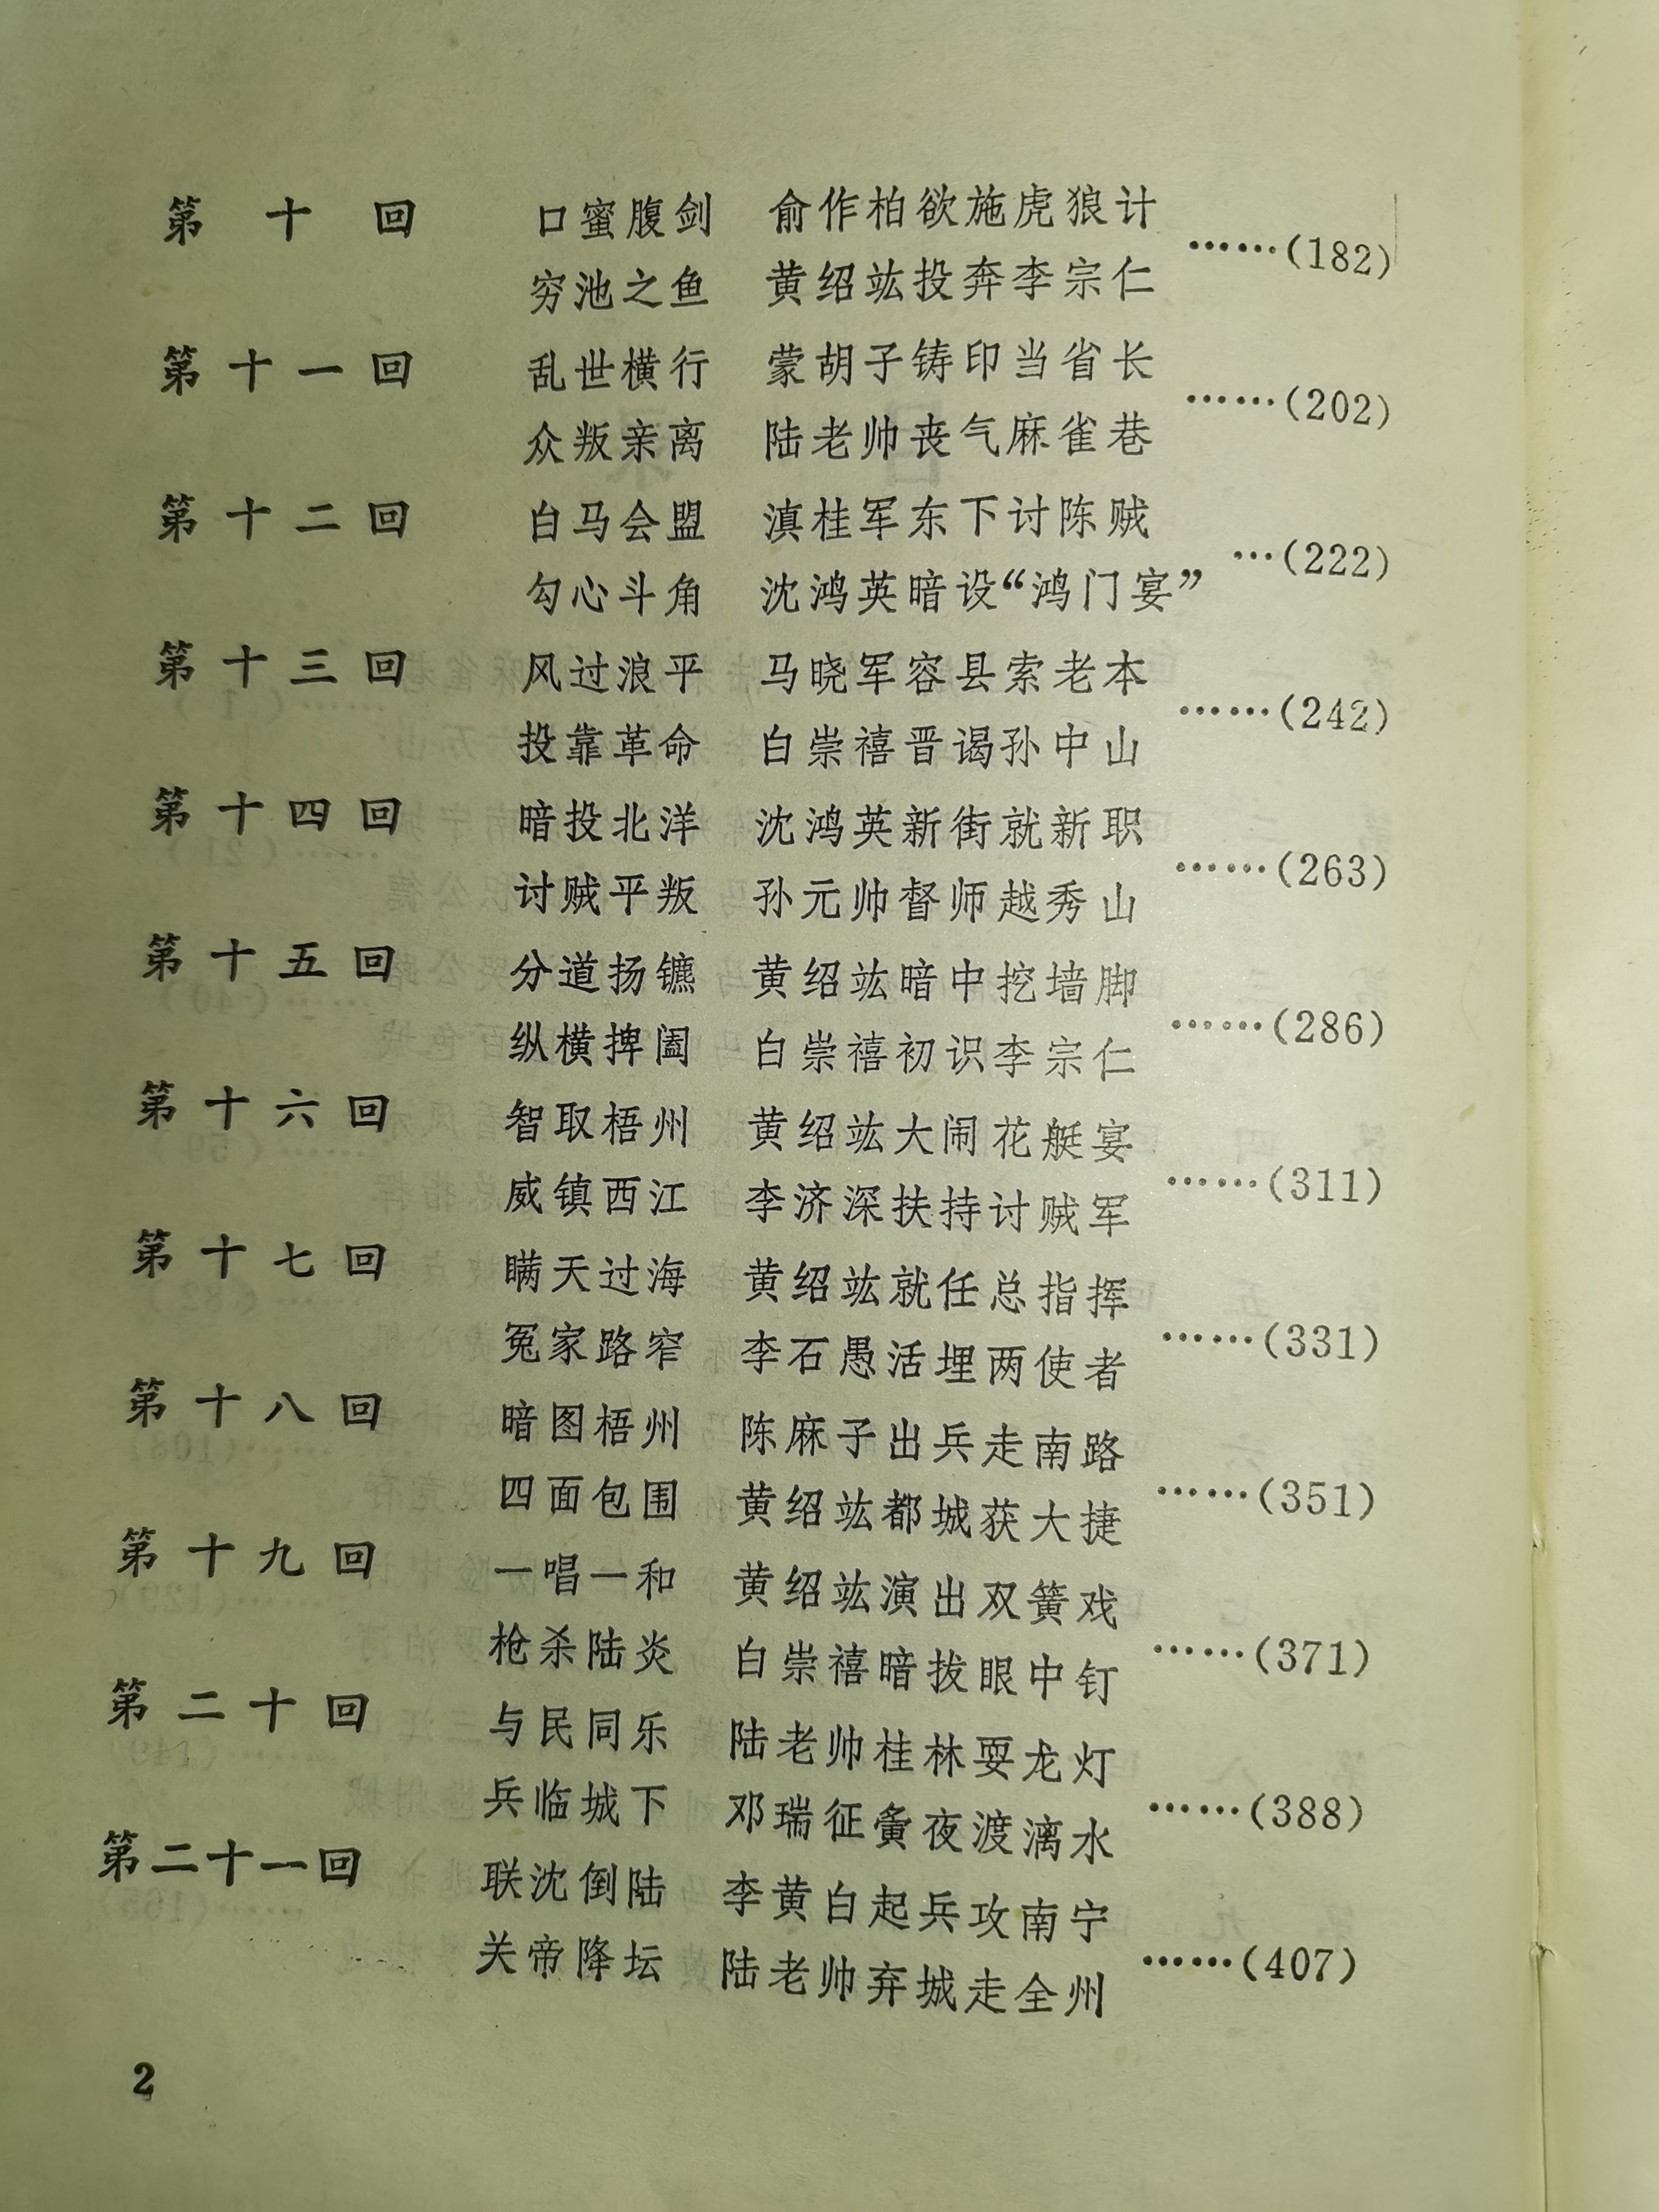 第十回 口蜜腹剑 俞作柏欲施虎狼计
穷池之鱼 黄绍竑投奔李宗仁 ……(182)
第十一回 乱世横行 蒙胡子铸印当省长
众叛亲离 陆老帅丧气麻雀巷 ……(202)
第十二回 白马会盟 滇桂军东下讨陈贼
勾心斗角 沈鸿英暗设“鸿门宴” …(222)
第十三回 风过浪平 马晓军容县索老本
投靠革命 白崇禧晋谒孙中山 ……(242)
第十四回 暗投北洋 沈鸿英新街就新职
讨贼平叛 孙元帅督师越秀山 ……(263)
第十五回 分道扬镳 黄绍竑暗中挖墙脚
纵横捭阖 白崇禧初识李宗仁 ……(286)
第十六回 智取梧州 黄绍竑大闹花艇宴
威镇西江 李济深扶持讨贼军 ……(311)
第十七回 瞒天过海 黄绍竑就任总指挥
冤家路窄 李石愚活埋两使者 ……(331)
第十八回 暗图梧州 陈麻子出兵走南路
四面包围 黄绍竑都城获大捷 ……(351)
第十九回 一唱一和 黄绍竑演出双簧戏
枪杀陆炎 白崇禧暗拔眼中钉 ……(371)
第二十回 与民同乐 陆老帅桂林耍龙灯
兵临城下 邓瑞征夤夜渡漓水 ……(388)
第二十一回 联沈倒陆 李黄白起兵攻南宁
关帝降坛 陆老帅弃城走全州 ……(407)
2